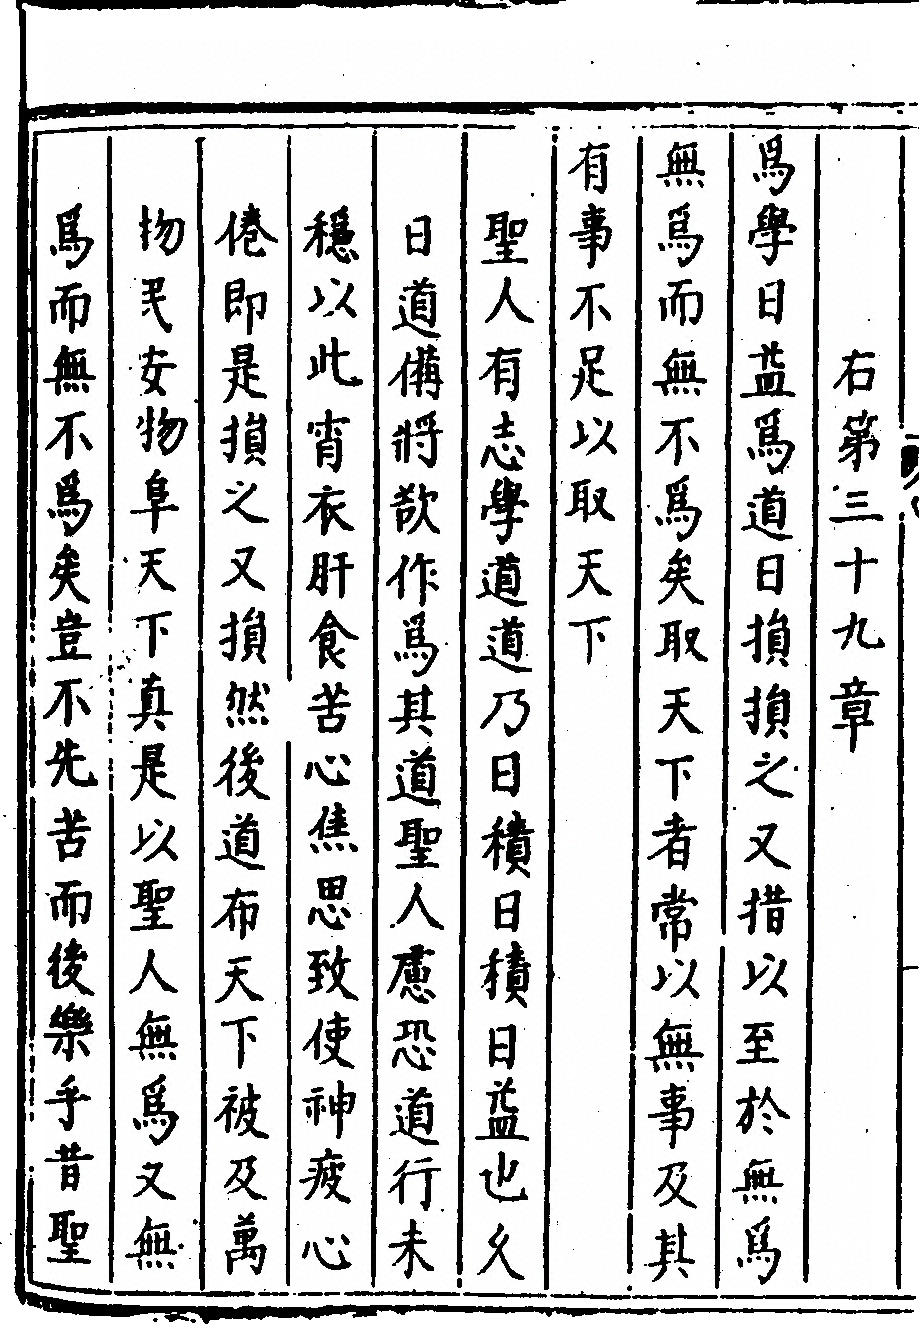 右第三十九章
爲學日益爲道日損損之又措以至於無爲
無爲而無不爲矣取天下者常以無事及其
有事不足以取天下
聖人有志學道道乃日積日積日益也久
日道備將欲作爲其道聖人慮恐道行未
穩以此宵衣肝食苦心焦思致使神疲心
倦即是損之又損然後道布天下被及萬
物民安物阜天下真是以聖人無爲又無
爲而無不爲矣豈不先苦而後樂乎昔聖